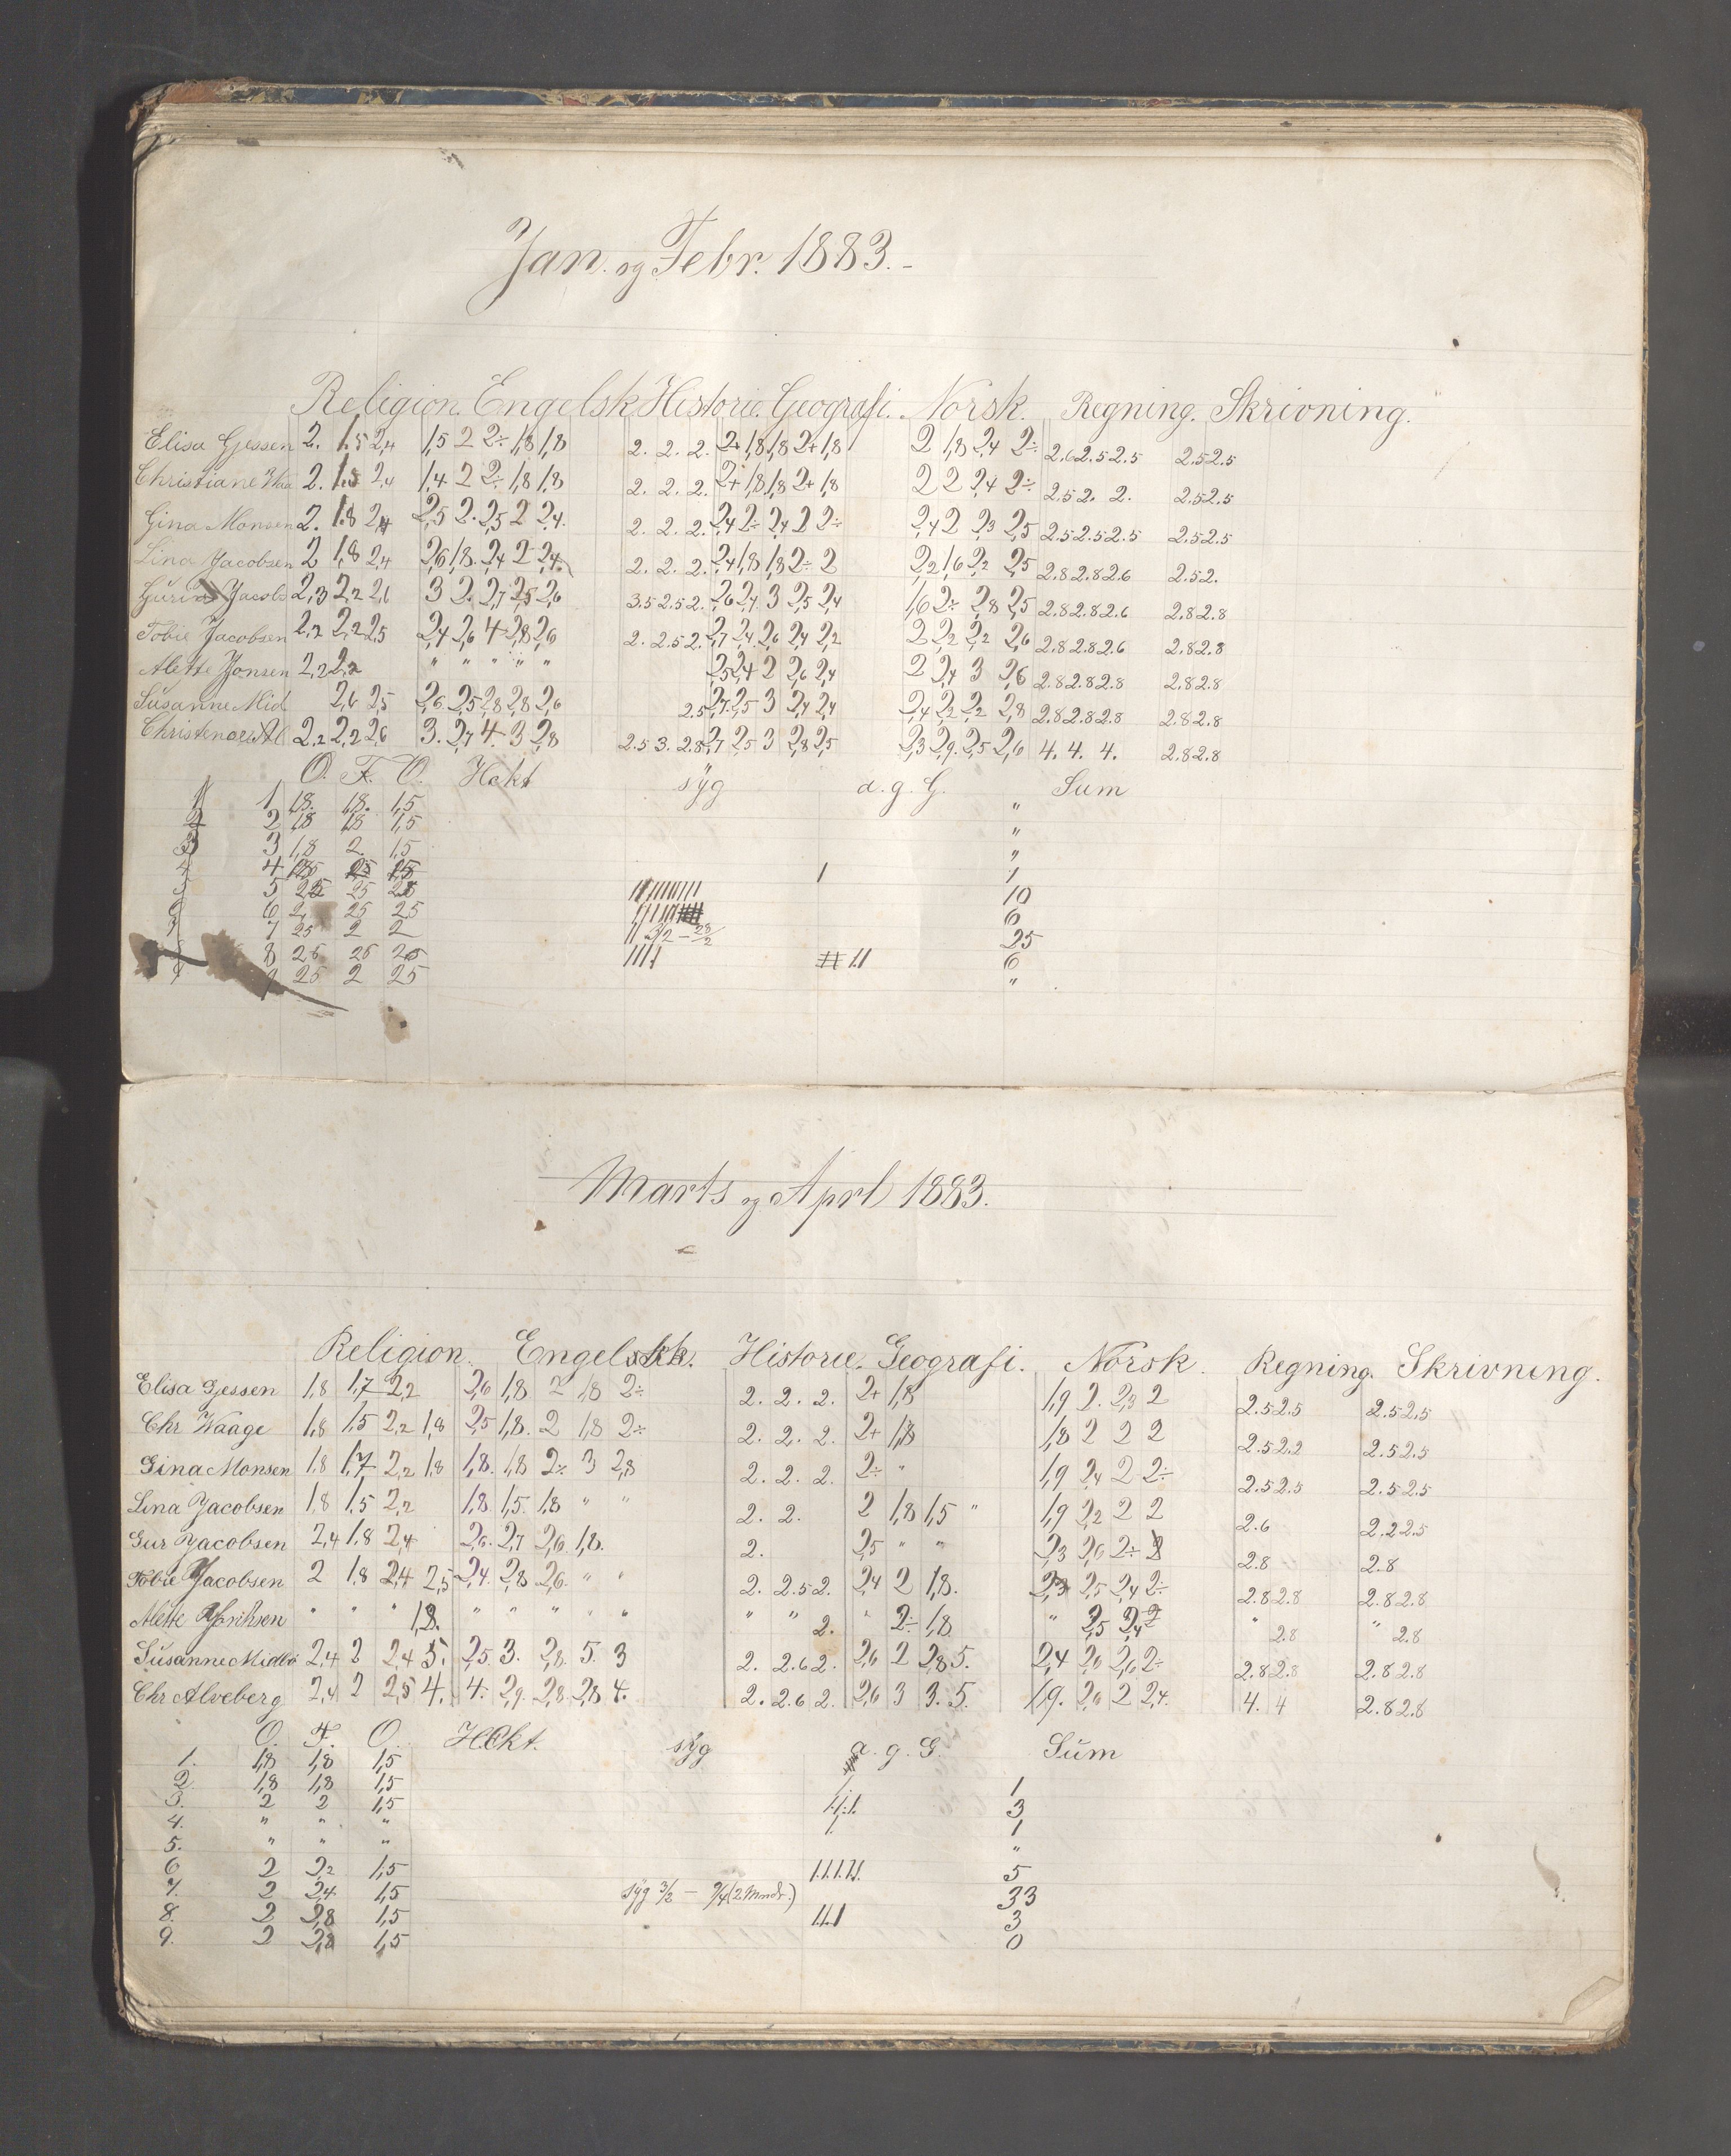 Jan. og Febr. 1883.-
Religion. Engelsk Historie. Geografi. Norsk. Regning. Skrivning.
Elisa Gjessen 2. 1.5 2,4 1,5 2 2÷ 1,8 1,8 2. 2. 2. 2+ 1,8 1,8 2+ 1,8 2 1,8 2,4 2÷ 2.6 2.5 2.5 2.5 2.5
Christiane Waa 2. 1.8 2,4 1,4 2 2÷ 1,8 1,8 2. 2. 2. 2+ 1,8 1,8 2+ 1,8 2 2 2,4 2÷ 2.5 2. 2. 2.5 2.5
Gina Monsen 2. 1.8 2,4 2,5 2. 2,5 2 2,4. 2. 2. 2. 2,4 2÷ 2,4 2 2÷ 2,4 2 2,3 2,5 2.5 2.5 2.5 2.5 2.5
Lina Jacobsen 2 1,8 2,4 2,6 1,8. 2,4 2 2,4. 2. 2. 2. 2,4 1,8 1,8 2÷ 2 2,2 1,6 2,2 2,5 2.8 2.8 2.6 2.5 2.
Gurine Jacobs 2,3 2,2 2,6 3 2. 2,7 2,5 2,6 3.5 2.5 2. 2,6 2,4. 3 2,5 2,4 1,6 2÷ 2,8 2,5 2.8 2.8 2.6 2.8 2.8
Tobie Jacobsen 2,2 2,2 2,5 2,4 2,6 4 2,8 2,6 2. 2.5 2. 2,7 2,4. 2,6 2,4 2,2 2 2,2 2,2 2,6 2.8 2.8 2.6 2.8 2.8
Alette Jonsen 2,2 2,2 " " " " " 2,5 2,4 2 2,6 2,4 2 2,4 3 2,6 2.8 2.8 2.8 2.8 2.8
Susanne Mid 2,6 2,5 2,6 2,5 2,8 2,8 2,6 2.5 2,7 2,5 3 2,4 2,4 2,4 2,2 2,2 2,8 2.8 2.8 2.8 2.8 2.8
2,2 2,2 2,6 3. 2,7 4. 3 2,8 2.5 3. 2.8 2,7 2,5 3 2,8 2,5 2,3 2,9. 2,5 2,6 4. 4. 4. 2.8 2.8
O. F. O. Hekt syg a. g. G. Sum
1 1 1,8. 1,8. 1,5 "
2 2 1,8 1,8 1,5 "
3 3 1,8 2. 1,5 "
4 4 1 1
5 5 25 10
6 6 2, 25 2,5 6
7 7 25 2 2 3/2 - 28/2 25
8 26 26 26 6
9 9 25 2 25 "
Marts og Aprl 1883.
Religion. Engelsk. Historie. Geografi. Norsk. Regning. Skrivning.
Elisa Gjessen 1,8 1,7 2,2 2,6 1,8 2 1,8 2÷ 2. 2. 2. 2+ 1,8 1,9 2. 2,3 2 2.5 2.5 2.5 2.5
Chr Waage 1,8 1,5 2,2 1,8 2,5 1,8. 2 1,8 2÷ 2. 2. 2. 2+ 1,8 1,8 2 2 2 2.5 2.2 2.5 2.5
Gina Monsen 1,8 1,7 2,2 1,8 1,8. 1,8 2÷ 3 2,8 2. 2. 2. 2÷ " 1,9 2,4 2 2÷ 2.5 2.5 2.5 2.5
Lina Jacobsen 1,8 1,5 2,2 1,8. 1,5. 1,8 " " 2. 2. 2 1,8 1,5 " 1,9 2,2 2 2 2.6 2.2 2.5
Gur Jacobsen 2,4 1,8 2,4 2,6. 2,7 2,6 1,8. 2. 2,5 " " 2,3 2,6 2÷ 2 2.8 2.8
Tobie Jacobsen 2 1,8 2,4 2,5 2,4. 2,8 2,6. " " 2. 2.5 2. 2,4 2 1,8. 2,3 2,5 2,4 2÷ 2.8 2.8 2.8 2.8
Alette " " " 1,8. " " " " " " " 2. " 2÷ 1,8 " 2,5 2,4 2 " 2.8 " 2.8
Susanne Midbö 2,4 2 2,4 5. 2,5 3. 2,8. 5. 3 2. 2.6 2. 2,6 2 2,8 5. 2,4 2,6 2,6 2÷ 2.8 2.8 2.8 2.8
Chr Alveberg 2,4 2 2,5 4. 4. 2,9. 2,8. 2,8 4. 2. 2.6 2. 2,6 3 3. 5. 1,9. 2,6 2 2,4. 4. 4 2.8 2.8
O. F. O. Hekt. syg a. g. G. Sum
1. 1,8 1,8 1,5 1
2. 1,8 1,8 1,5 3
3. 2 2 1,5 1
4. " " "
5. " " " "
6 2 2,2 1,5 5
7. 2 2,4 1,5 syg 3/2 - 9/4 (2 Mndr.) 33
8. 2 2,8 1,5 3
9. 2 2,8 1,5 0